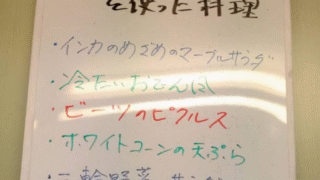 を使った料理
・インカのめざめのマーブルサラダ
・冷たいおでん風
・ビーツのピクルス
・ホワイトコーンの天ぷら